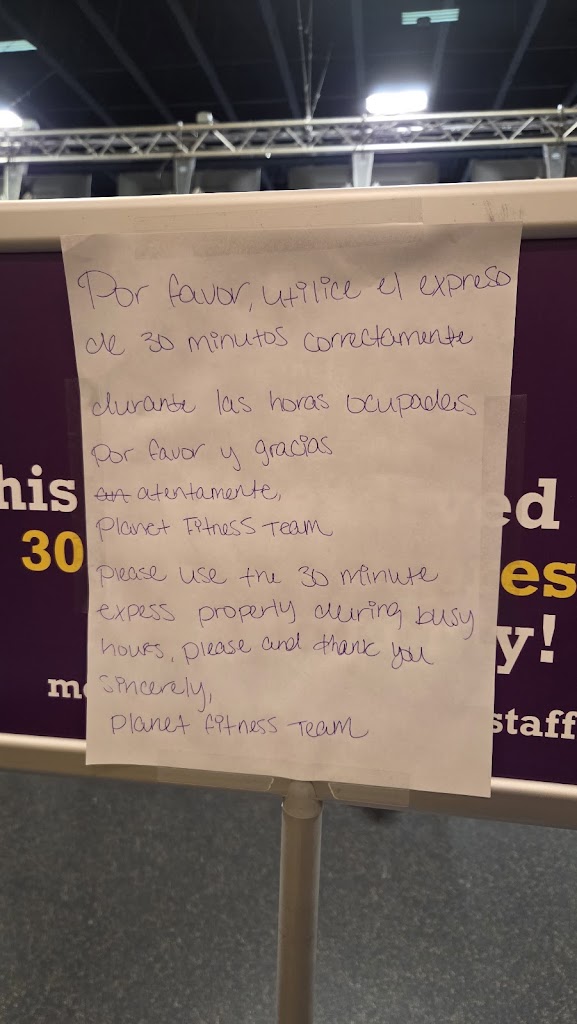 Por favor, utilice el expreso
de 30 minutos correctamente
durante las horas ocupadas
por favor y gracias
an atentamente,
Planet Fitness Team
please use the 30 minute
expess properly during busy
hours, please and thank you
sincerely,
Planet fitness Team
his
ed
30
es
y!
m
staff